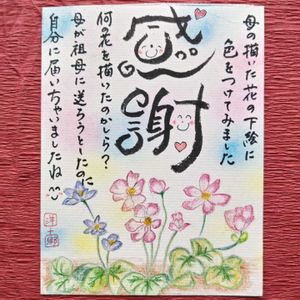 母の描いた花の下絵に
色をつけてみました
感謝
何の花を描いたのかしら？
母が祖母に送ろうとしたのに
自分に届いちゃいましたね